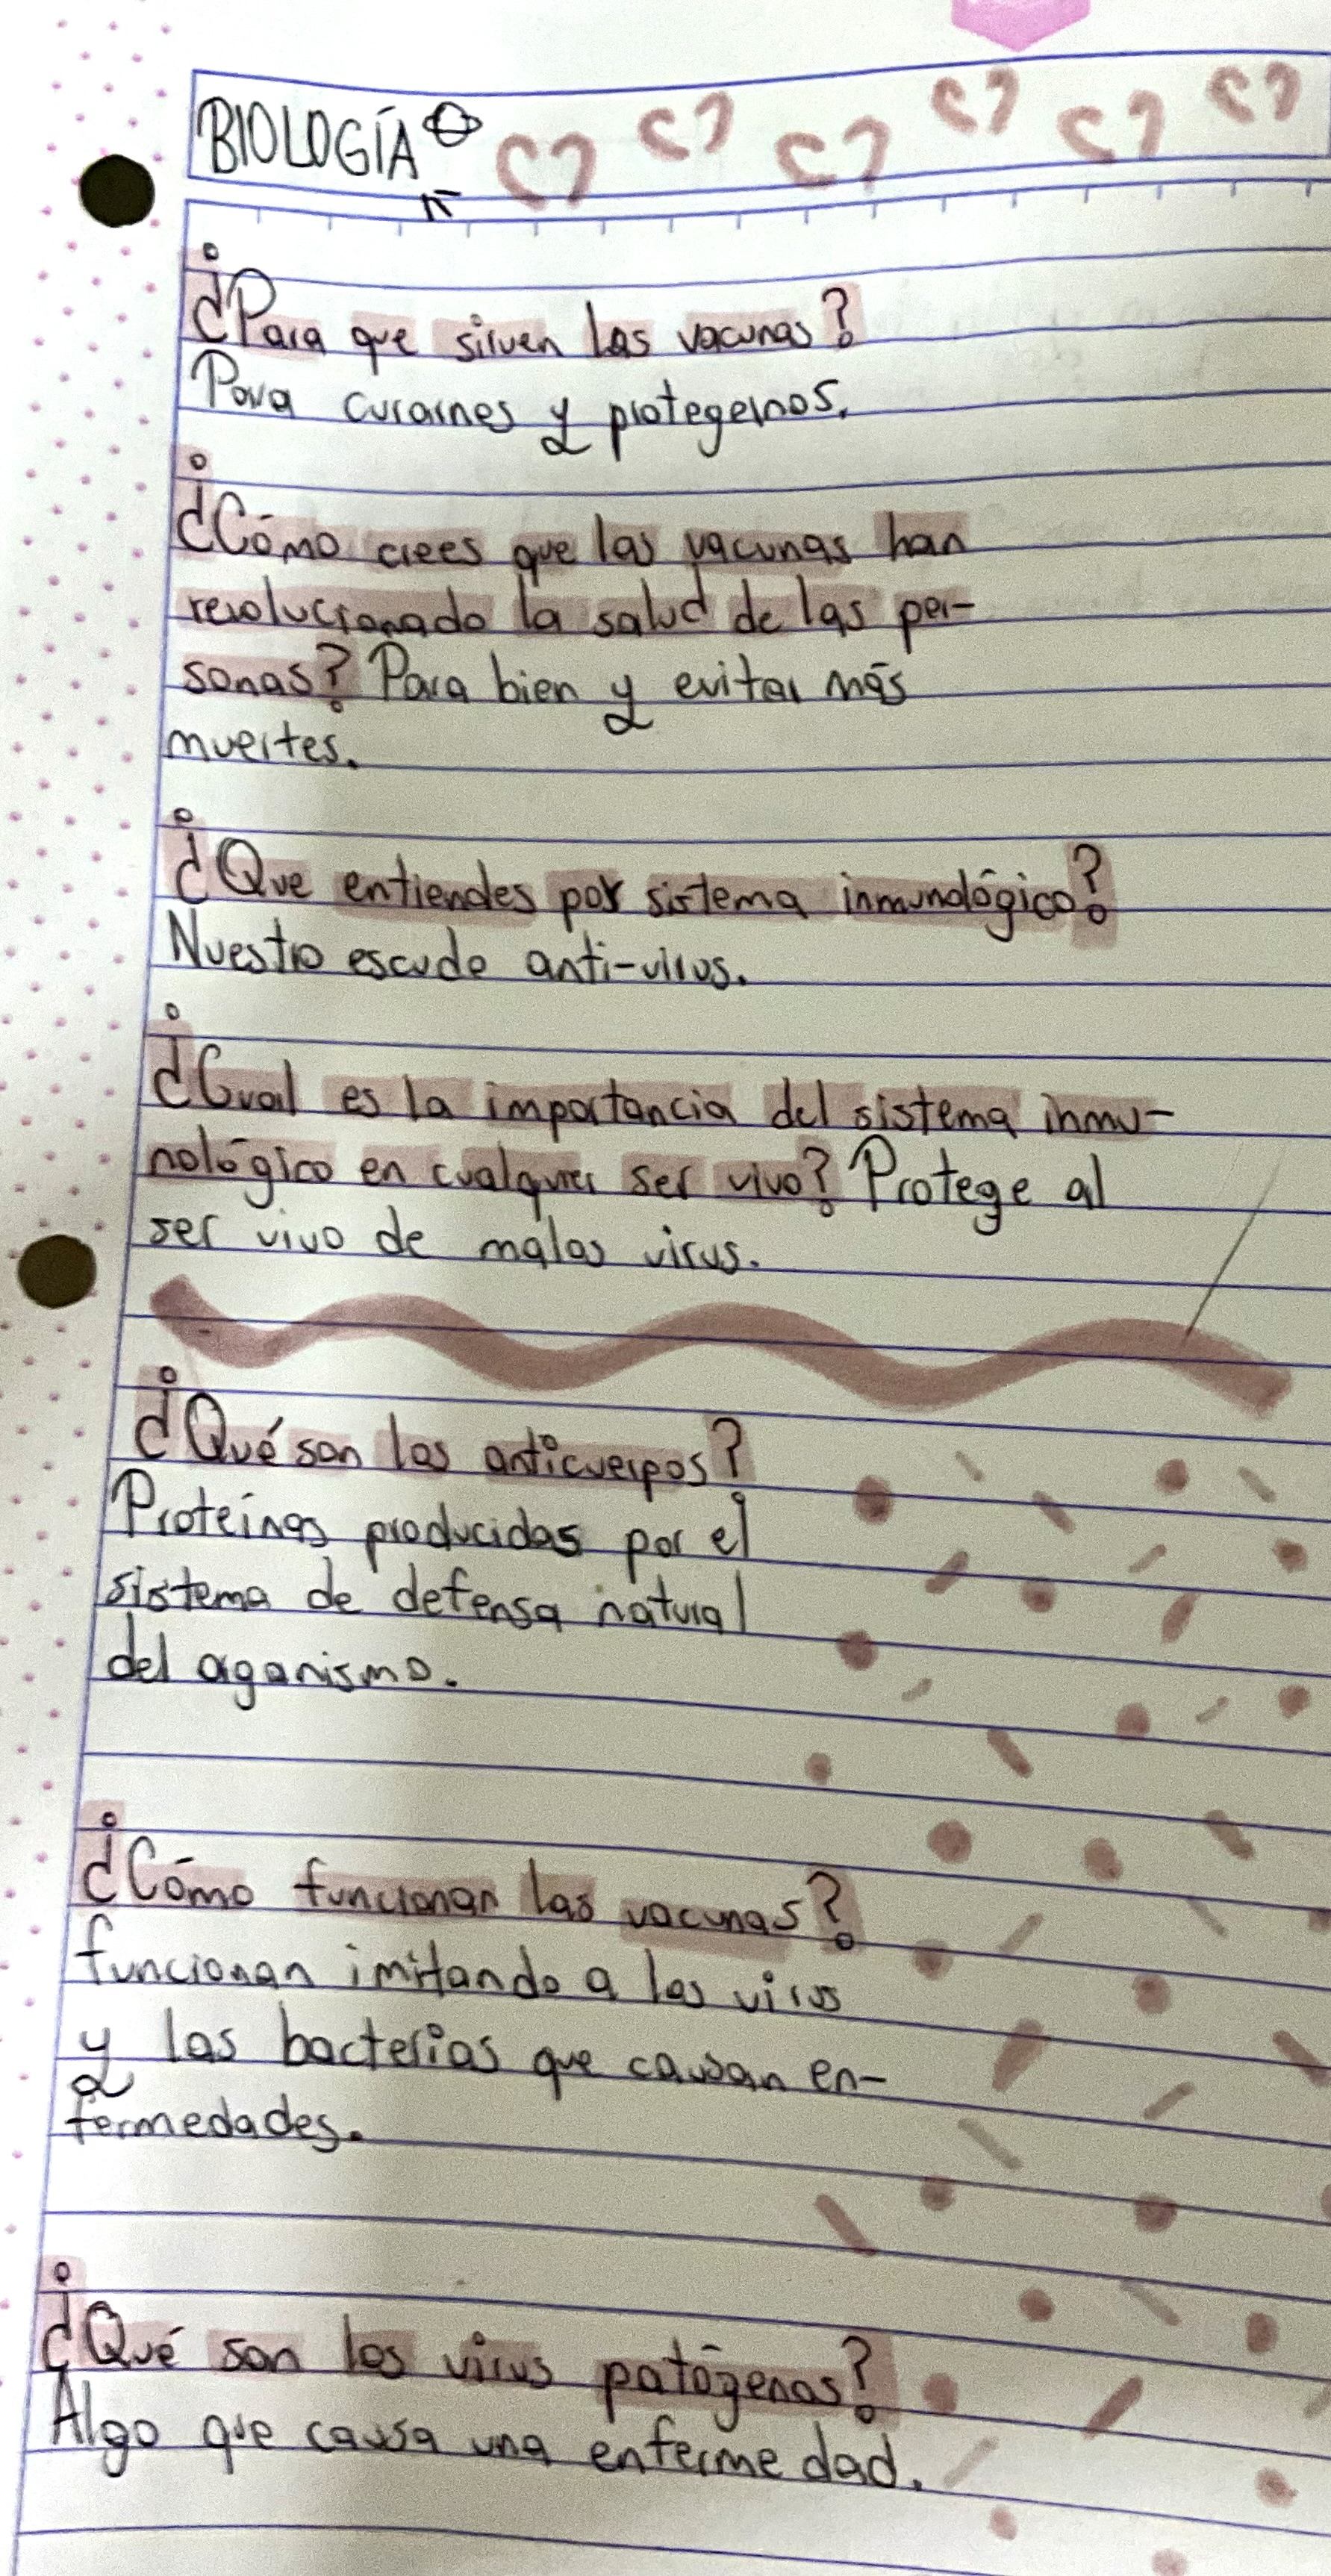 BIOLOGÍA
¿Para que sirven las vacunas?
Para curarnos y protegernos.
¿Cómo crees que las vacunas han
revolucionado la salud de las per-
sonas? Para bien y evitar más
muertes.
¿Que entiendes por sistema inmunológico?
Nuestro escudo anti-virus.
¿Cual es la importancia del sistema inmu-
nológico en cualquier ser vivo? Protege al
ser vivo de malos virus.
¿Qué son los anticuerpos?
Proteínas producidas por el
sistema de defensa natural
del organismo.
¿Cómo funcionan las vacunas?
funcionan imitando a los virus
y las bacterias que causan en-
fermedades.
¿Qué son los virus patógenos?
Algo que causa una enfermedad.